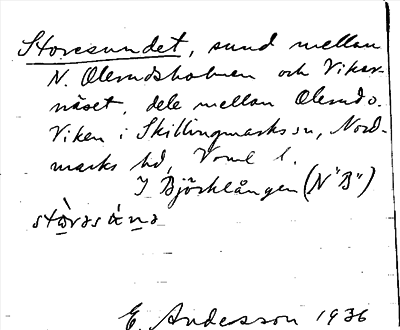 Storesundet, sund mellan
N. Olerudsholmen och Vikar-
näset, dels mellan Olerud o.
Viken i Skillingmarks sn, Nord-
marks hd, Verml. l.
I Björklången (N"B")
E. Andersson 1936